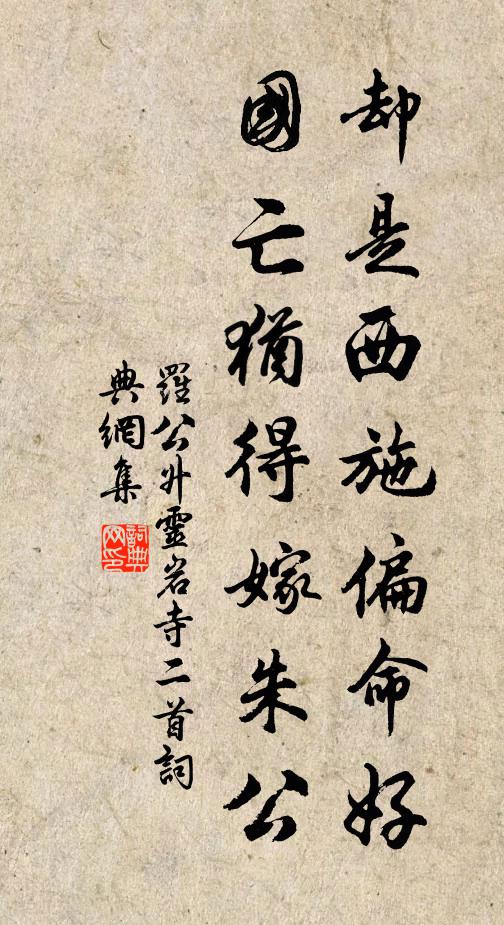 却是西施偏命好
國亡猶得嫁朱公
羅公升靈岩寺二首詞
典網集
詞典
网印